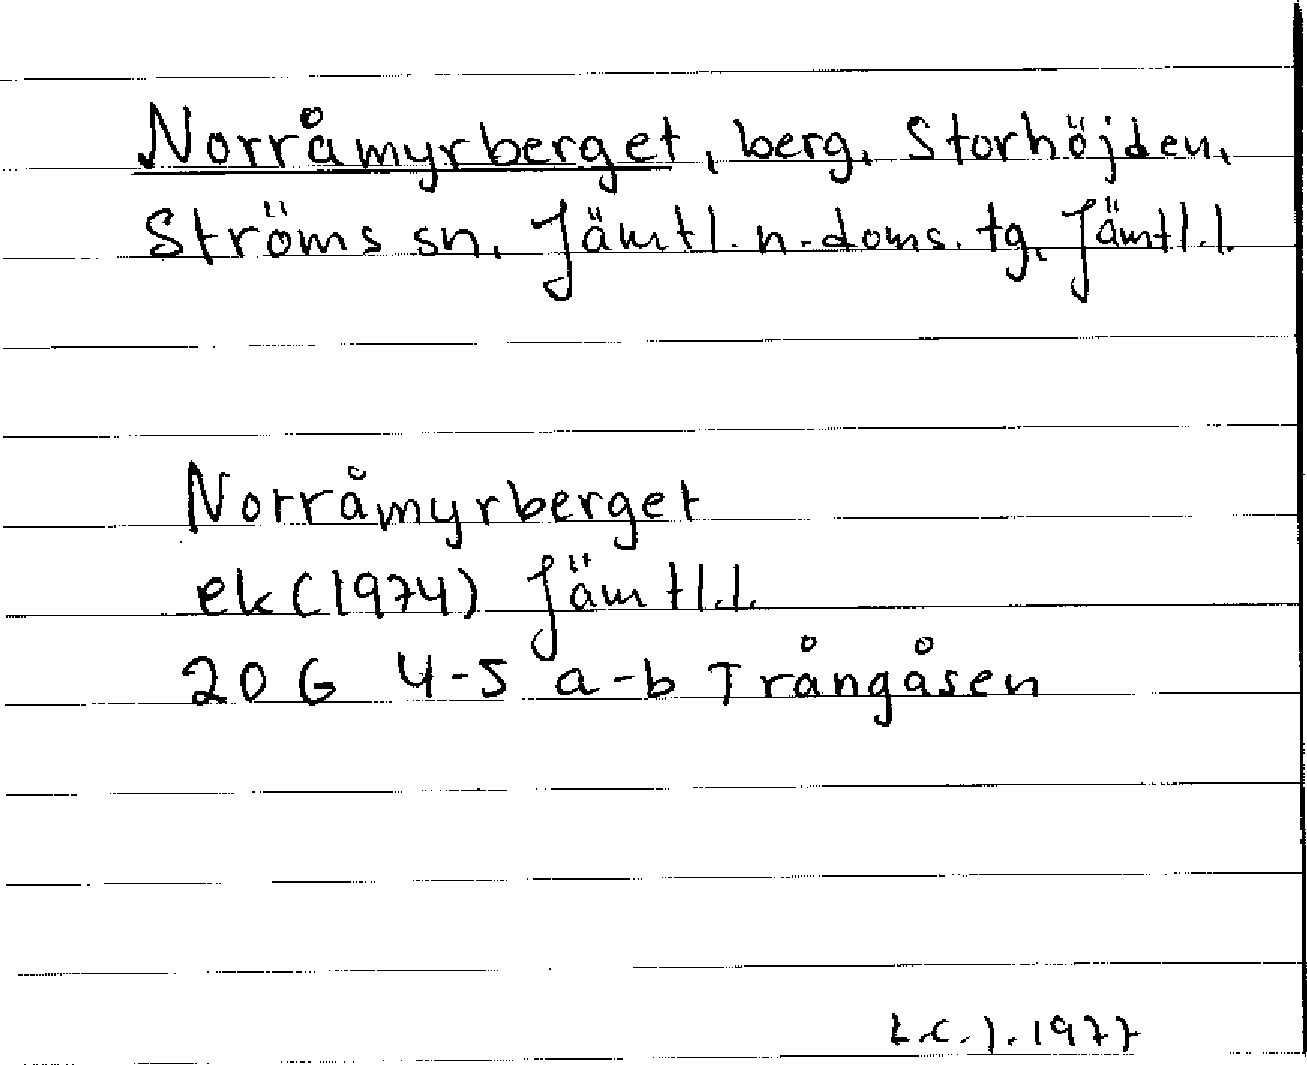 Norråmyrberget, berg, Storhöjden,
Ströms sn, Jämtl. n. doms. tg, Jämtl. l.
Norråmyrberget
ek (1974) Jämtl. l.
20 G 4-5 a-b Trångåsen
L.C.J. 1977